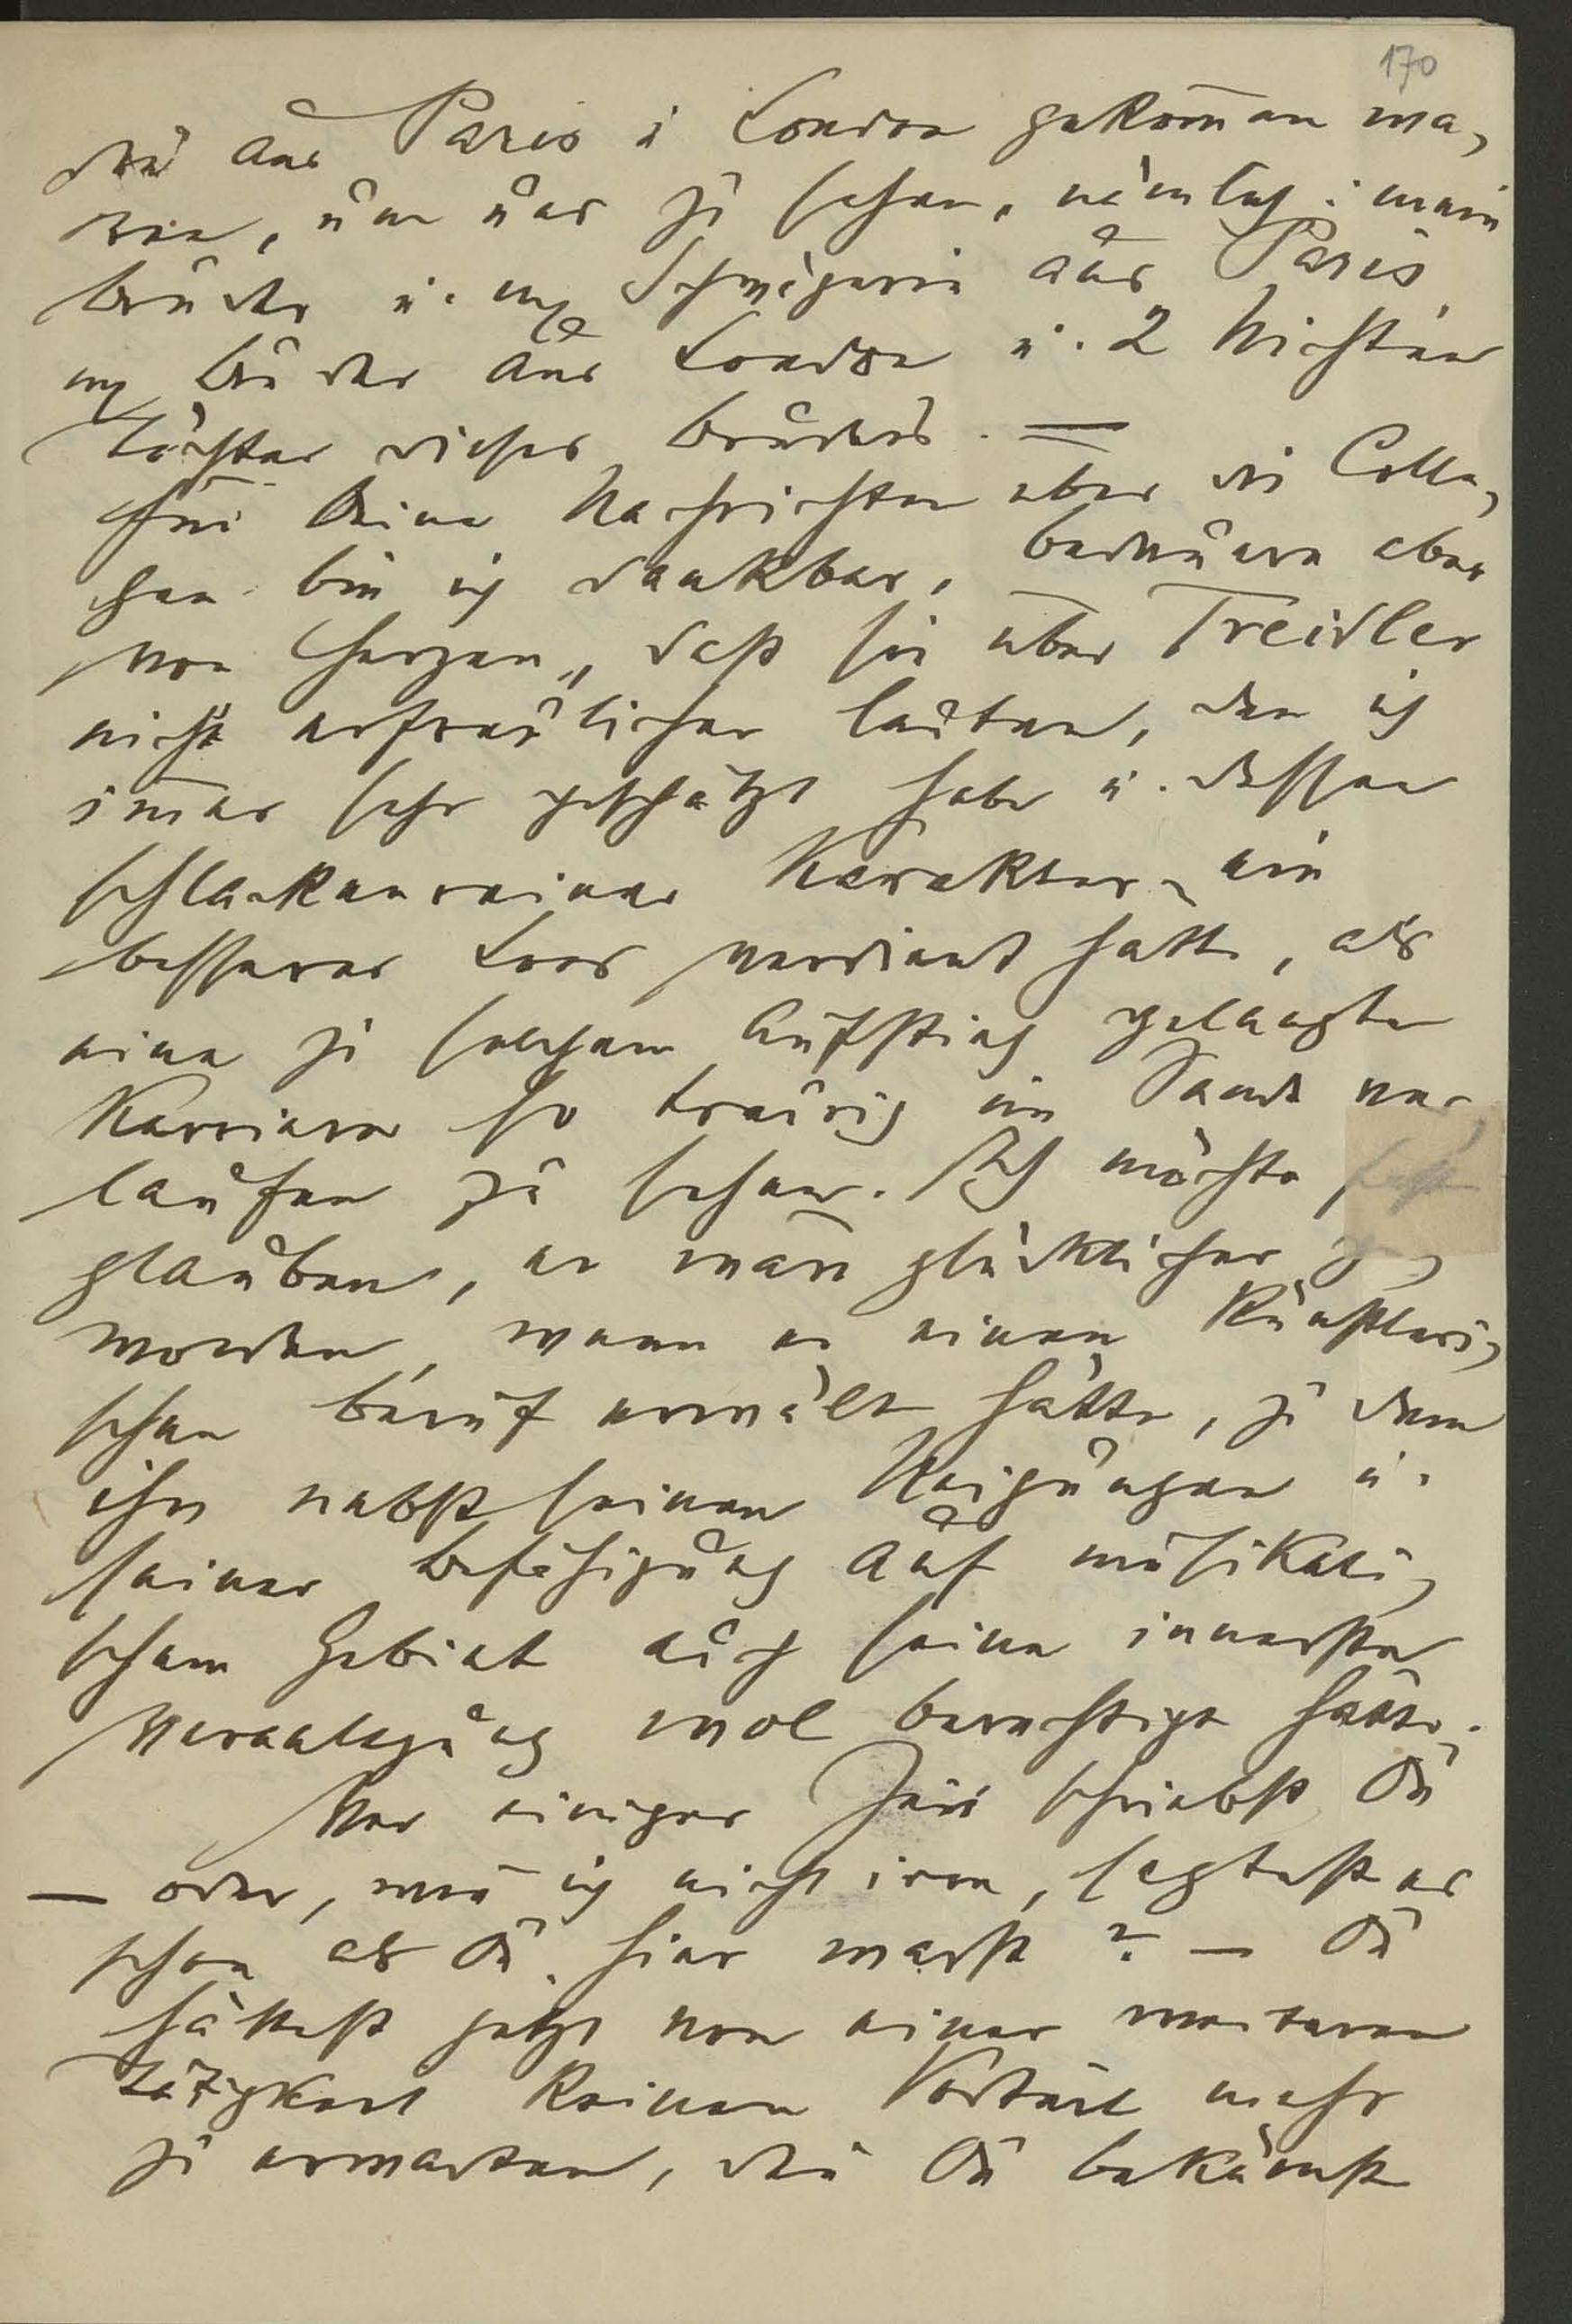 170
die aus Paris u London gekom̅en wa-
ren, um uns zu sehen, nämlich: mein
Bruder u. m. Schwägerin aus Paris,
m. Bruder aus London u. 2 Nichten
Töchter dieses Bruders. —
Für Deine Nachrichten über die Colle-
gen bin ich dankbar, bedauern aber
von Herzen, daß sie über Treidler
nicht erfreulicher lauten, den ich
im̅er sehr geschätzt habe u. dessen
schlackenreiner Karakter ein
besseres Loos verdient hätte, als
eine zu solchem Aufstieg gelangte
Karriere so traurig im Sande ver-
laufen zu sehen. Ich möchte fast
glauben, er wäre glücklicher ge-
worden, wenn er einen künstleri-
schen Beruf erwält hätte, zu dem
ihn nebst seinen Neigungen u.
seiner Befähigung auf musikali-
schem Gebiet auch seine innerste
Veranlagung wol berechtigt hätte.
Vor einiger Zeit schriebst Du
— oder, wen̅ ich nicht irre, sagtest es
schon als Du hier warst? — Du
hättest jetzt von einer weiteren
Tätigkeit keinen Vorteil mehr
zu erwarten, die Du bekämst